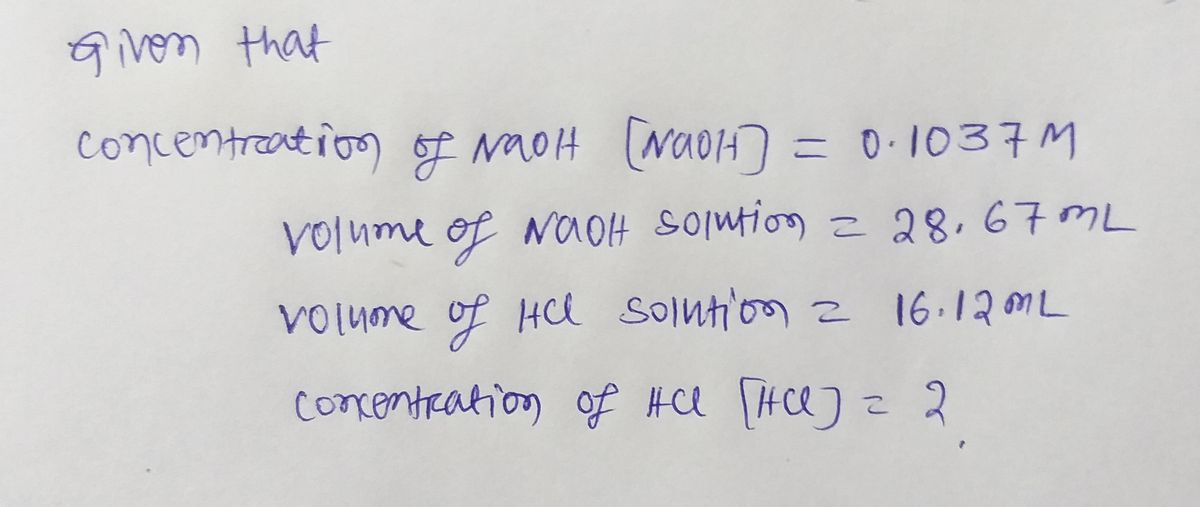 Given that
concentration of NaOH [NaOH] = 0.1037M
volume of NaOH solution = 28.67mL
volume of HCl solution = 16.12mL
concentration of HCl [HCl] = ?